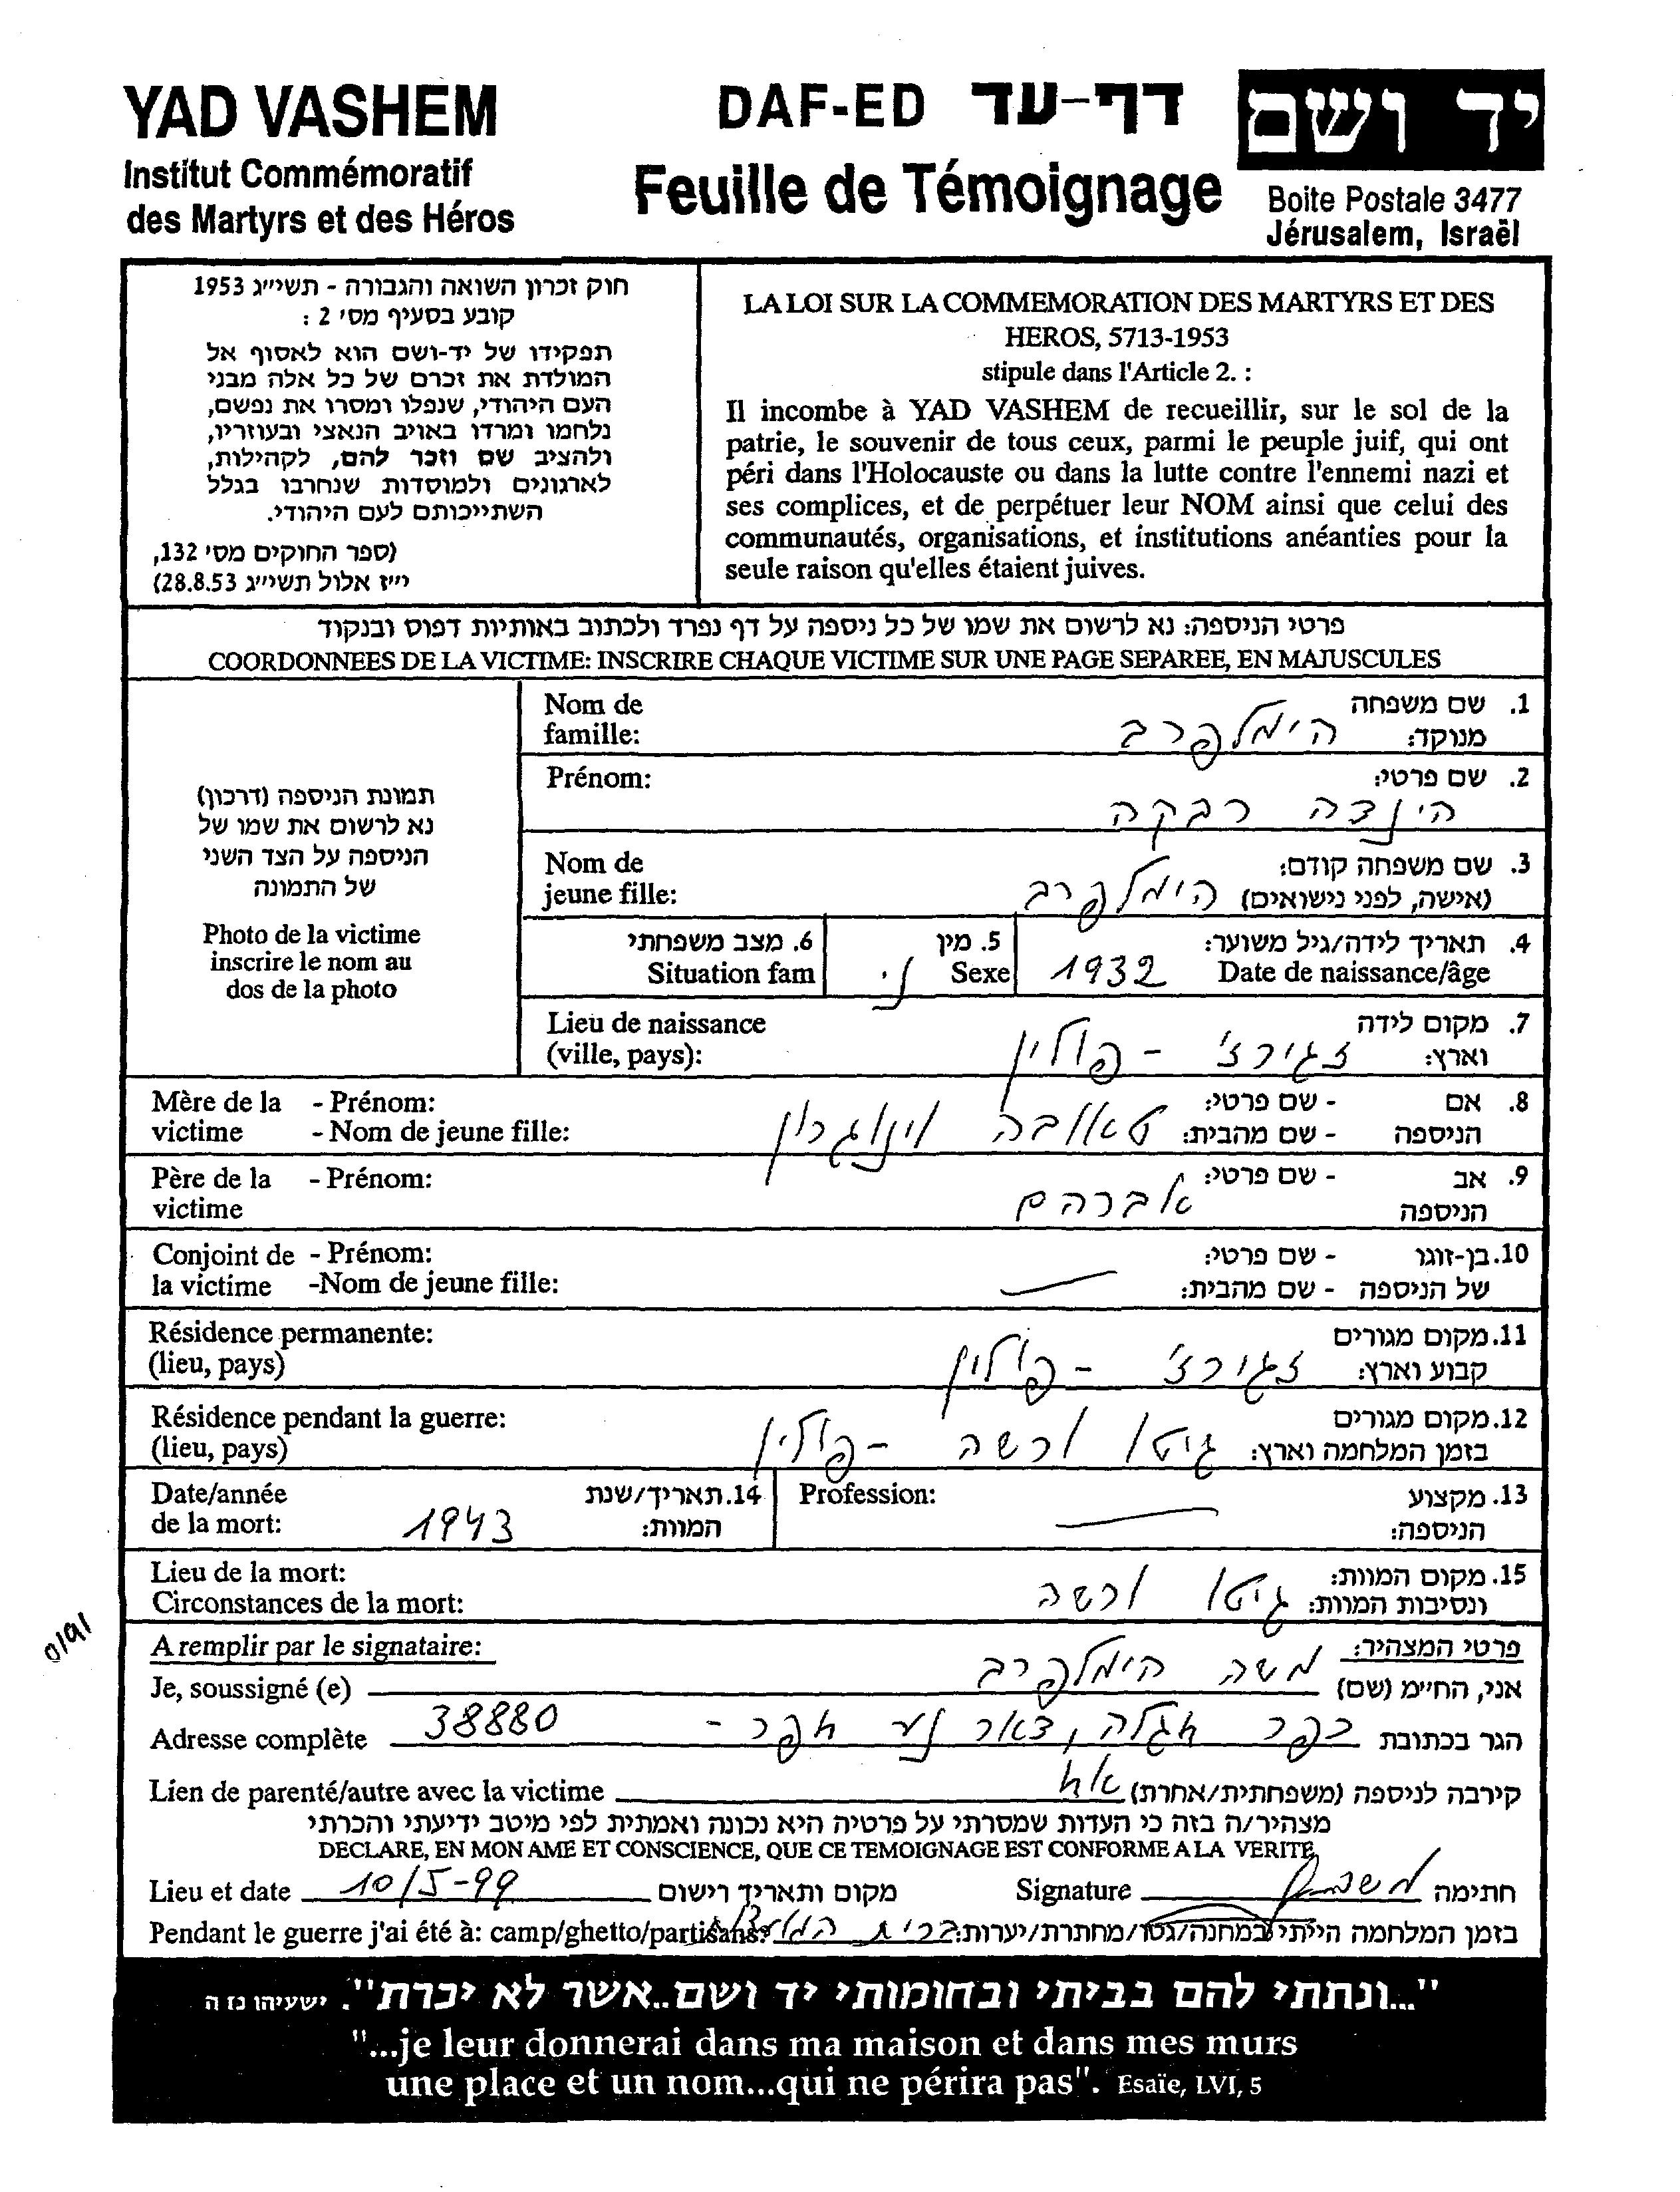 YAD VASHEM
Institut Commémoratif
des Martyrs et des Héros
DAF-ED דף-עד
Feuille de Témoignage
יד ושם
Boite Postale 3477
Jérusalem, Israël
חוק זכרון השואה והגבורה - תשי״ג 1953
קובע בסעיף מס׳ 2 :
תפקידו של יד-ושם הוא לאסוף אל
המולדת את זכרם של כל אלה מבני
העם היהודי, שנפלו ומסרו את נפשם,
נלחמו ומרדו באויב הנאצי ובעוזריו,
ולהציב שם וזכר להם, לקהילות,
לארגונים ולמוסדות שנחרבו בגלל
השתייכותם לעם היהודי.
(ספר החוקים מס׳ 132,
י״ז אלול תשי״ג 28.8.53)
LA LOI SUR LA COMMEMORATION DES MARTYRS ET DES
HEROS, 5713-1953
stipule dans l'Article 2. :
Il incombe à YAD VASHEM de recueillir, sur le sol de la
patrie, le souvenir de tous ceux, parmi le peuple juif, qui ont
péri dans l'Holocauste ou dans la lutte contre l'ennemi nazi et
ses complices, et de perpétuer leur NOM ainsi que celui des
communautés, organisations, et institutions anéanties pour la
seule raison qu'elles étaient juives.
פרטי הניספה: נא לרשום את שמו של כל ניספה על דף נפרד ולכתוב באותיות דפוס ובנקוד
COORDONNEES DE LA VICTIME: INSCRIRE CHAQUE VICTIME SUR UNE PAGE SEPAREE, EN MAJUSCULES
תמונת הניספה (דרכון)
נא לרשום את שמו של
הניספה על הצד השני
של התמונה
Photo de la victime
inscrire le nom au
dos de la photo
Nom de
famille:
1. שם משפחה
מנוקד: הימלפרב
Prénom:
2. שם פרטי:
הינצה רבקה
Nom de
jeune fille:
3. שם משפחה קודם:
(אישה, לפני נישואים) הימלפרב
4. תאריך לידה/גיל משוער:
Date de naissance/âge 1932
5. מין
Sexe נ׳
6. מצב משפחתי
Situation fam
Lieu de naissance
(ville, pays):
7. מקום לידה
וארץ: זגירז׳ - פולין
Mère de la - Prénom:
victime - Nom de jeune fille:
8. אם - שם פרטי:
הניספה - שם מהבית: טאובה וינוגרון
Père de la - Prénom:
victime
9. אב - שם פרטי:
הניספה אברהם
Conjoint de - Prénom:
la victime -Nom de jeune fille:
10. בן-זוגו - שם פרטי:
של הניספה - שם מהבית:
Résidence permanente:
(lieu, pays)
11. מקום מגורים
קבוע וארץ: זגירז׳ - פולין
Résidence pendant la guerre:
(lieu, pays)
12. מקום מגורים
בזמן המלחמה וארץ: גיטו ורשה - פולין
13. מקצוע
הניספה:
Profession:
Date/année
de la mort:
14. תאריך/שנת
המוות: 1943
Lieu de la mort:
Circonstances de la mort:
15. מקום המוות:
ונסיבות המוות: גיטו ורשה
A remplir par le signataire:
פרטי המצהיר:
Je, soussigné (e)
אני, החיימ (שם) משה הימלפרב
Adresse complète
הגר בכתובת כפר חגלה, דאר נע חפר - 38880
Lien de parenté/autre avec la victime
קירבה לניספה (משפחתית/אחרת) אח
מצהיר/ה בזה כי העדות שמסרתי על פרטיה היא נכונה ואמתית לפי מיטב ידיעתי והכרתי
DECLARE, EN MON AME ET CONSCIENCE, QUE CE TEMOIGNAGE EST CONFORME A LA VERITE
Lieu et date 10/5-99 מקום ותאריך רישום
Signature חתימה
Pendant le guerre j'ai été à: camp/ghetto/partisans:
בזמן המלחמה הייתי במחנה/גטו/מחתרת/יערות:
"...ונתתי להם בביתי ובחומותי יד ושם..אשר לא יכרת". ישעיהו נז ה
"...je leur donnerai dans ma maison et dans mes murs
une place et un nom...qui ne périra pas". Esaïe, LVI, 5